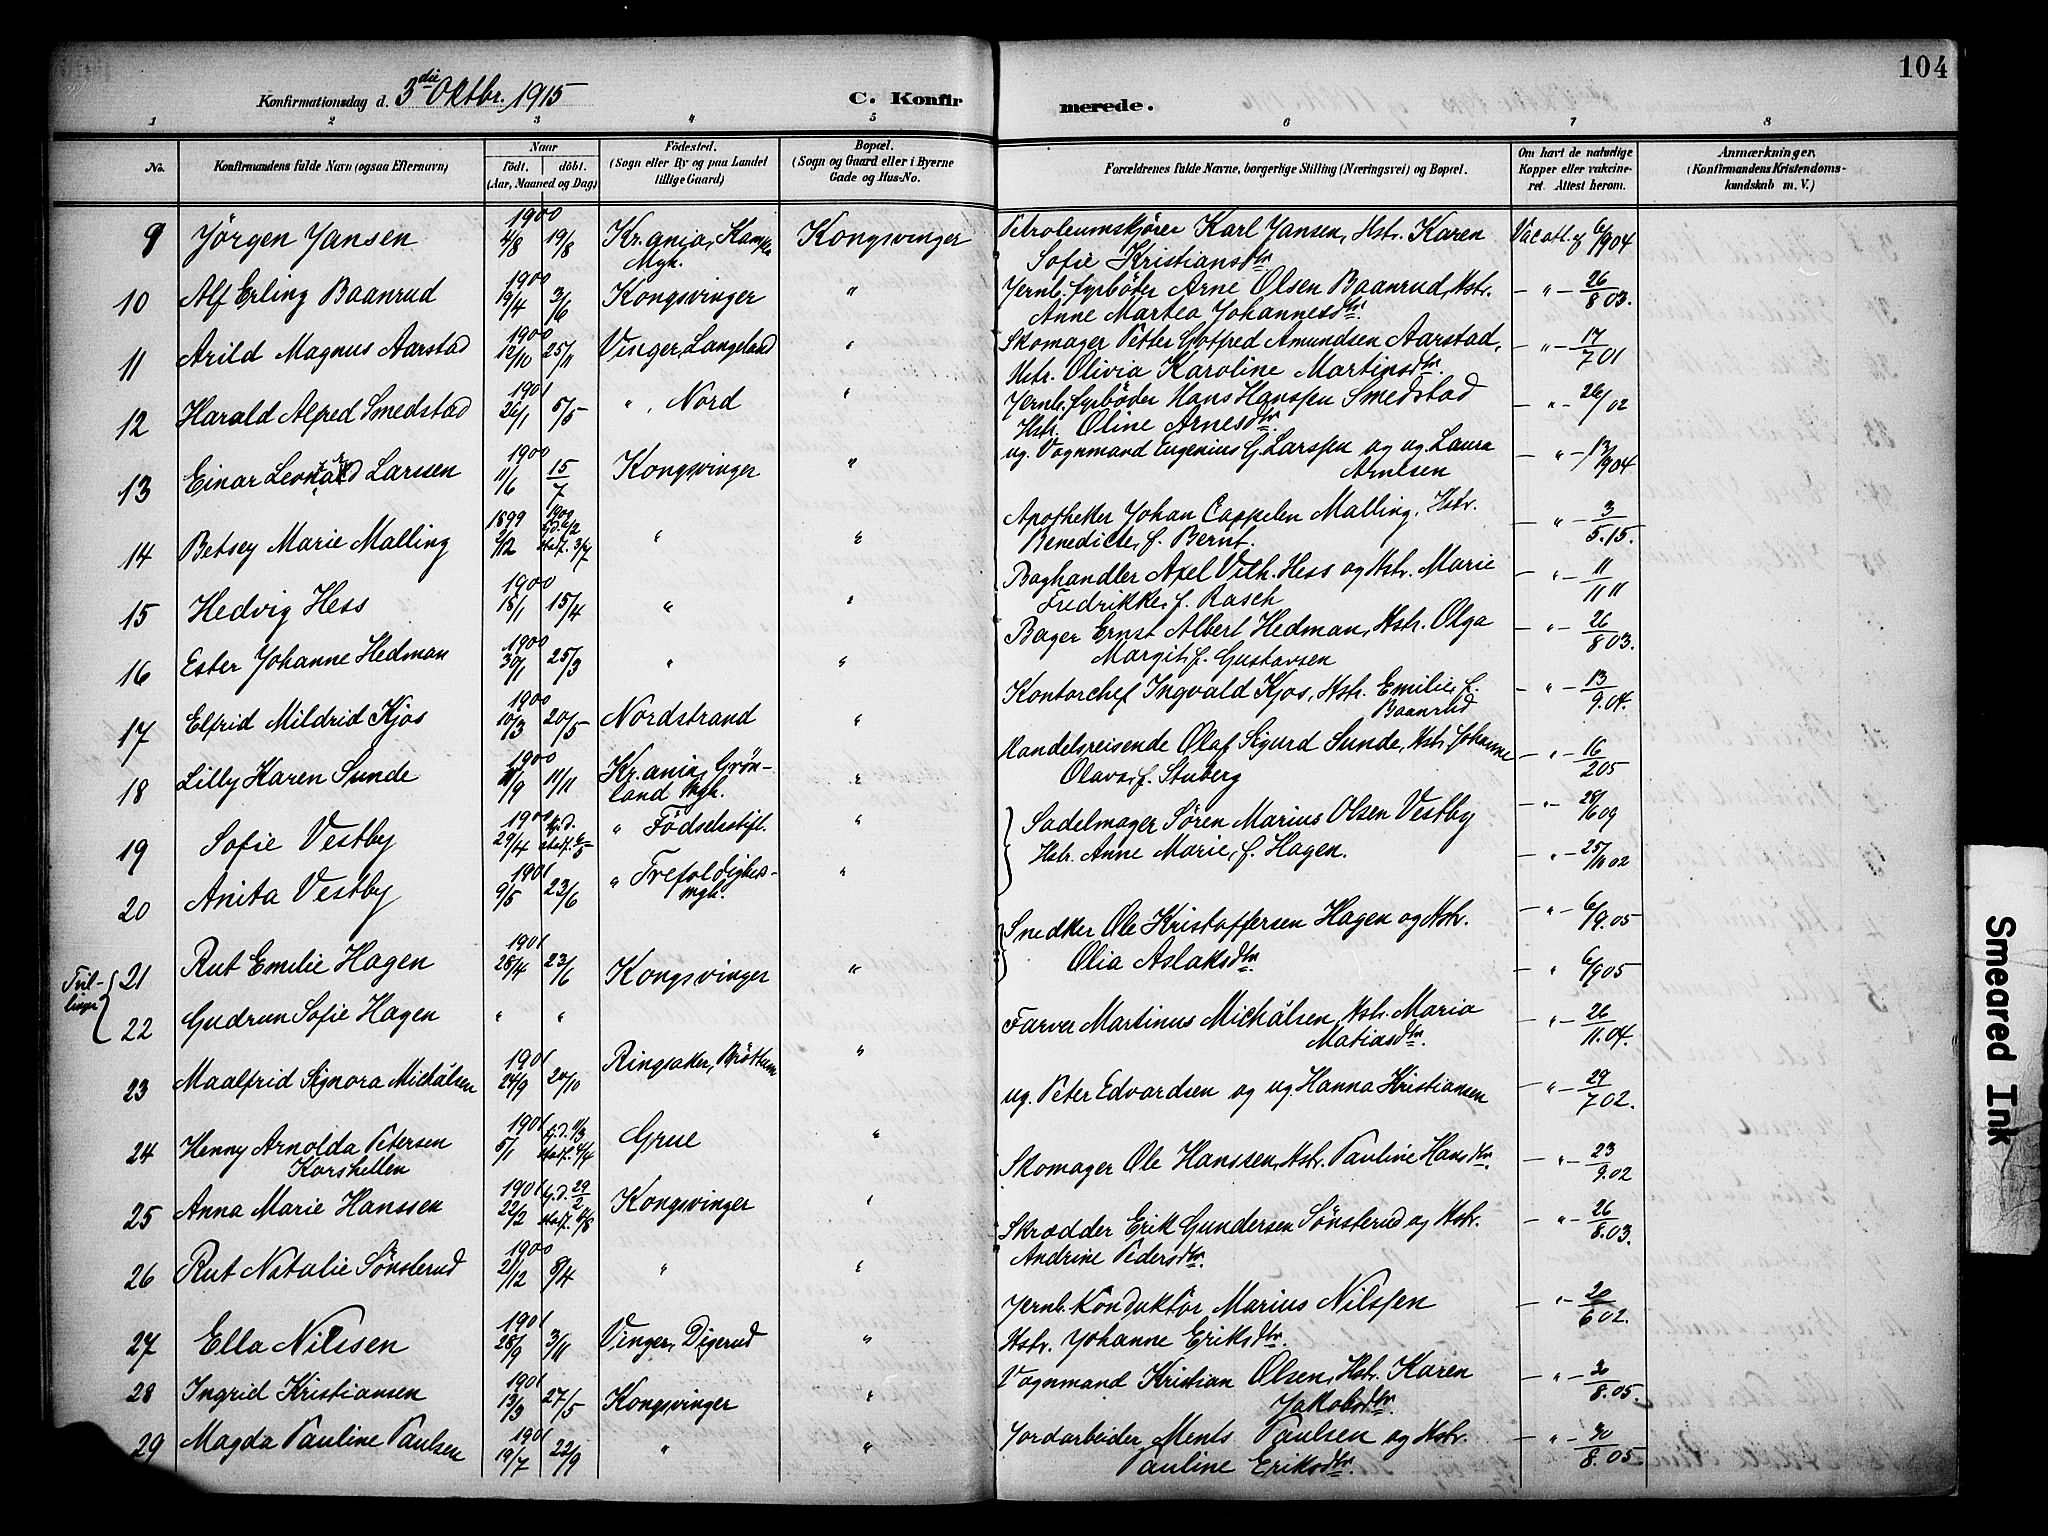 104
Konfirmationsdag d. 3die Oktbr. 1915 C. Konfirmerede.
1 2 3 4 5 6 7 8
No. Konfirmandens fulde Navn (ogsaa Efternavn) Naar født. døbt. (Aar, Maaned og Dag) Fødested. (Sogn eller By og paa Landet tillige Gaard) Bopæl. (Sogn og Gaard eller i Byerne Gade og Hus-No. Forældrenes fulde Navne, borgerlige Stilling (Næringsvei) og Bopæl. Om havt de naturlige Kopper eller vakcineret. Attest herom. Anmærkninger. (Konfirmandens Kristendomskundskab m. V.)
9 Jørgen Jansen 1900 4/8 19/8 Kr.ania, Kampen Mgh. Kongsvinger Petroleumskjører Karl Jansen, Hstr. Karen Vac att. af 6/9 04
Sofie Kristiansdtr.
10 Alf Erling Baanrud 1900 19/4 3/6 Kongsvinger " Jernb. fyrbøder Arne Olsen Baanrud, Hstr. – " – 26/8 03.
Anne Martea Johannesdtr.
11 Arild Magnus Aarstad 1900 12/10 25/11 Vinger, Langeland " Skomager Petter Gotfred Amundsen Aarstad, – " – 17/7 01
Hstr. Olivia Karoline Martinsdtr.
12 Harald Alfred Smedstad 1901 26/1 5/5 " , Nord " Jernb. fyrbøder Hans Hanssen Smedstad – " – 26/02
Hstr. Oline Arnesdtr.
13 Einar Leonard Larssen 1900 11/6 15/7 Kongsvinger " ug. Vognmand Eugenius G. Larssen og ug. Laura – " – 13/9 04.
Arnesen
14 Betsey Marie Malling 1899 2/12 1900 " " Apotheker Johan Cappelen Malling, Hstr. – " – 3/5.15.
Benedicte, f. Bernt.
15 Hedvig Hess 1900 18/1 15/4 " " Boghandler Axel Vilh. Hess og Hstr. Marie – " – 11/11 11
Fredrikke, f. Rasch
16 Ester Johanne Hedman 1900 30/1 25/3 " " Bager Ernst Albert Hedman, Hstr. Olga – " – 26/8 03.
Margit, f. Gustavsen
17 Elfrid Mildrid Kjos 1900 10/3 20/5 Nordstrand " Kontorchef Ingvald Kjos, Hstr. Emilie, f. – " – 13/9.04.
Baanrud
18 Lilly Karen Sunde 1900 /9 11/11 Kr.ania, Grønland Mgh. " Handelsreisende Olaf Sigurd Sunde, Hstr. Johanne – " – 16/2 05
Olava, f. Stuberg
19 Sofie Vestby 1900 29/4 hj.d. stadf. " Fødselsstift. " Sadelmager Søren Marius Olsen Vestby – " – 28/6 09
Hstr. Anne Marie, f. Hagen.
20 Anita Vestby 1901 9/5 23/6 " Trefoldigheds-mgh. " – " – 25/11 02
Tvillinger 21 Rut Emilie Hagen 1901 28/4 23/6 Kongsvinger " Snedker Ole Kristoffersen Hagen og Hstr. – " – 6/9.05
Olia Aslaksdtr.
22 Gudrun Sofie Hagen " " " 6/9 05
23 Maalfrid Signora Michalsen 1901 24/9 20/10 Ringsaker, Brøttum " Farver Martinus Michalsen, Hstr. Maria – " – 26/11.04.
Matiasdtr.
24 Henny Arnolda Petersen 1901 5/1 hj.d. /3 stadf. /4 Grue " ug. Peter Edvardsen og ug. Hanna Kristiansen – " – 29/7 02.
Korshellen
25 Anna Marie Hanssen 1901 22/2 hj.d. 29/2 stadf. /8 Kongsvinger " Skomager Ole Hanssen, Hstr. Pauline Hansdtr. – " – 23/9.02
26 Rut Natalie Sønsterud 1900 21/12 8/4 " " Skrædder Erik Gundersen Sønsterud og Hstr. – " – 26/8.03.
Andrine Pedersdtr.
27 Ella Nilssen 1901 28/9 3/11 Vinger, Digerud " Jernb. Konduktør Marius Nilssen – " – 20/6 02.
Hstr. Johanne Eriksdtr.
28 Ingrid Kristiansen 1901 13/3 27/5 Kongsvinger " Vognmand Kristian Olsen, Hstr. Karen – " – 30/8.05.
Jakobsdtr.
29 Magda Pauline Paulsen 1901 19/7 22/9 " " Jordarbeider Ments Paulsen og Hstr. – " – 30/8.05
Pauline Eriksdtr.
Smeared Ink